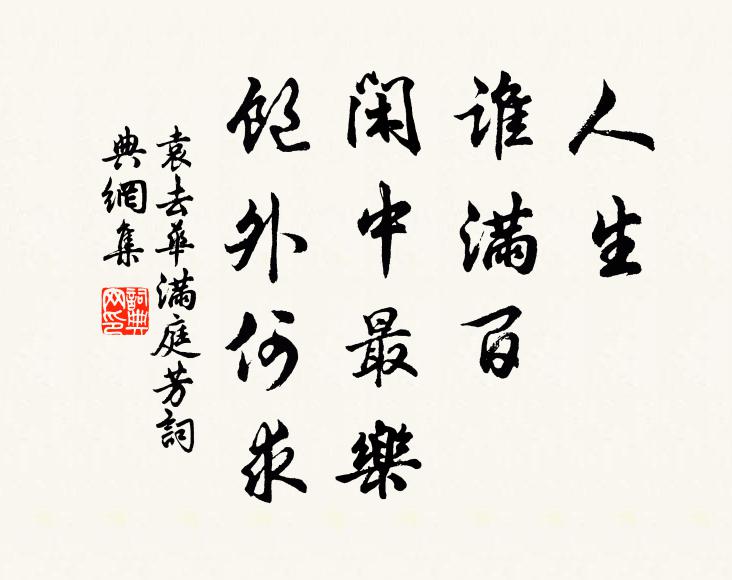 人生
誰滿百
閑中最樂
飽外何求
袁去華滿庭芳詞
典網集
詞典
网印